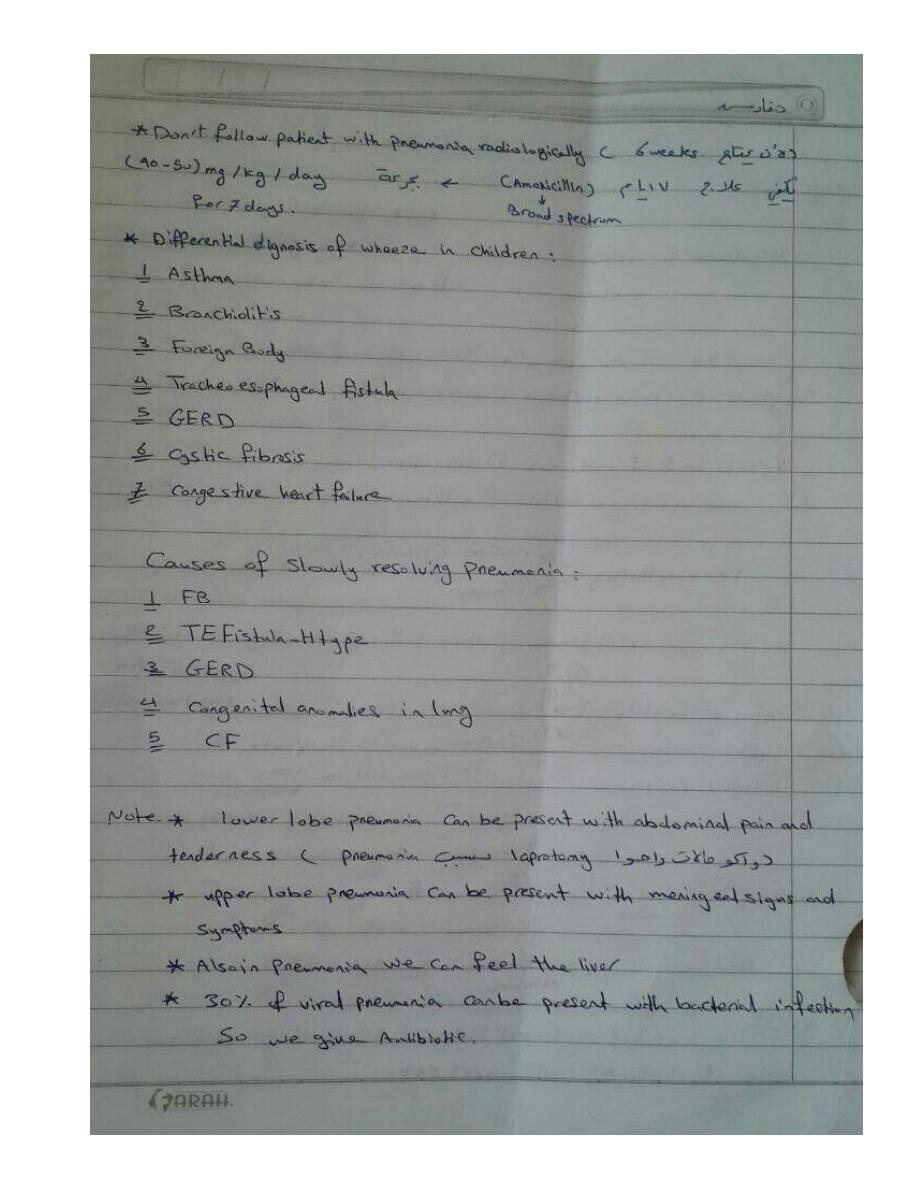 * Don't follow patient with pneumonia radiologically ( 6 weeks
(90-50) mg/kg/day بجرعة ← (Amoxicillin) علاج ٧ ايام
for 7 days. ↓ Broad spectrum
* Differential dignosis of wheeze in children :
1 Asthma
2 Bronchiolitis
3 Foreign Body
4 Tracheo esophageal fistula
5 GERD
6 Cystic fibrosis
7 Congestive heart failure
Causes of Slowly resolving pneumonia :
1 FB
2 TE Fistula - H type
3 GERD
4 Congenital anomalies in lung
5 CF
Note * lower lobe pneumonia can be present with abdominal pain and
tenderness ( pneumonia بسبب laprotomy حالات راحوا
* upper lobe pneumonia can be present with meningeal signs and
symptoms
* Also in pneumonia we can feel the liver
* 30% of viral pneumonia can be present with bacterial infection
So we give Antibiotic.
FARAH.